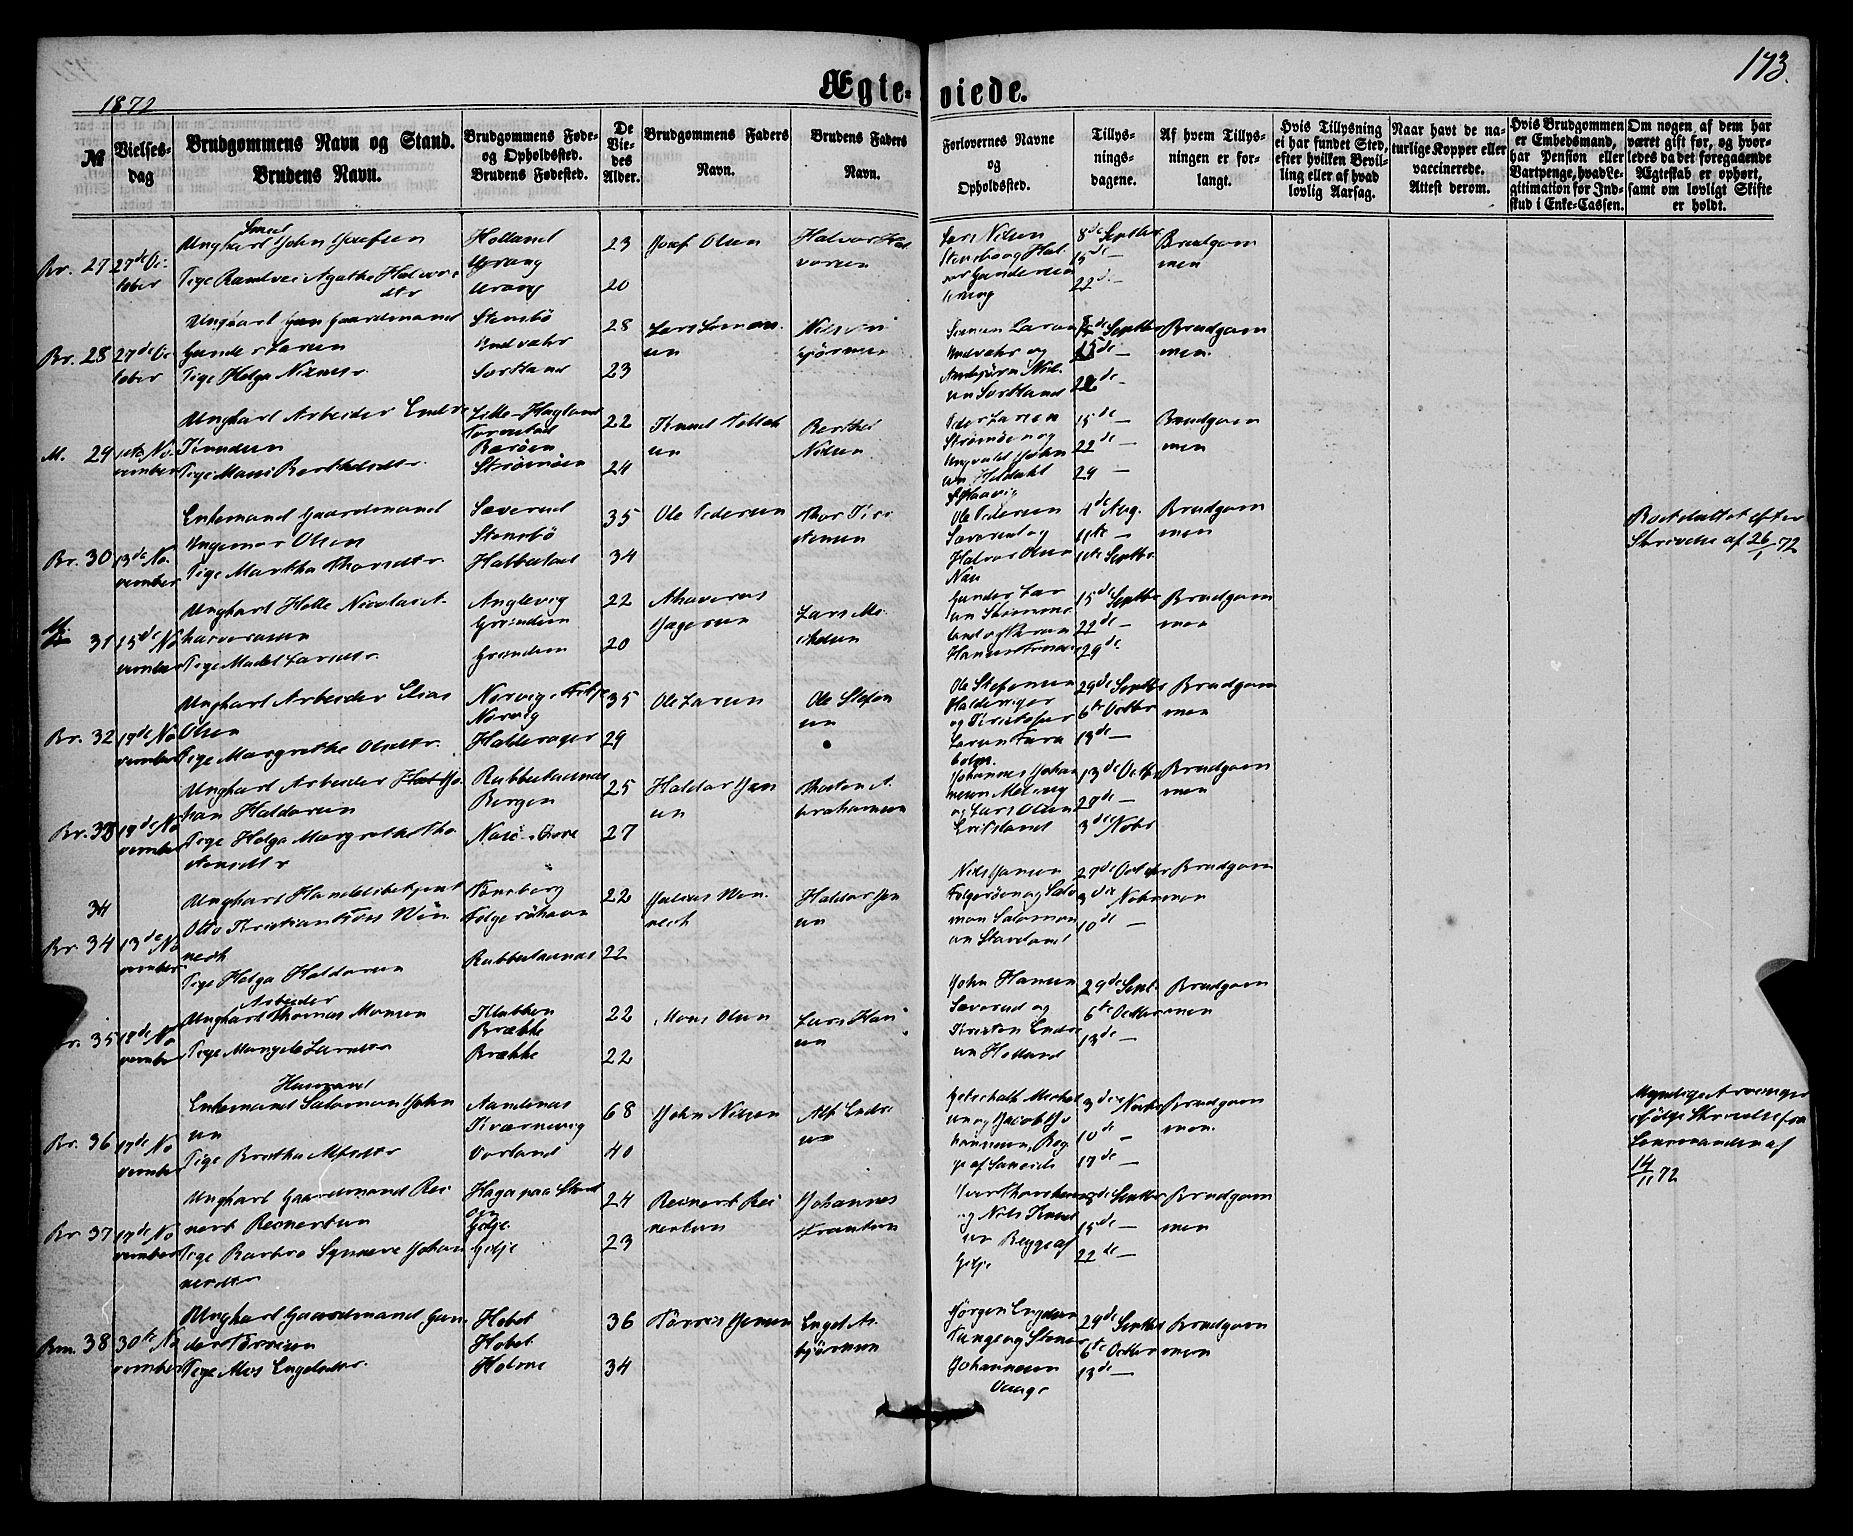 173.
Ægte- viede.
1872
№
Vielses-
dag
Brudgommens Navn og Stand.
Brudens Navn.
Brudgommens Føde-
og Opholdssted.
Brudens Fødested.
De
Vie-
des
Alder.
Brudgommens Faders
Navn.
Brudens Faders
Navn.
Forlovernes Navne
og
Opholdssted.
Tillys-
nings-
dagene.
Af hvem Tillys-
ningen er for-
langt.
Hvis Tillysning
ei har fundet Sted,
efter hvilken Bevil-
ling eller af hvad
lovlig Aarsag.
Naar havt de na-
turlige Kopper eller
vaccinerede.
Attest derom.
Hvis Brudgommen
er Embedsmand,
har Pension eller
Vartpenge, hvad Le-
gitimation for Ind-
skud i Enke-Cassen.
Om nogen af dem har
været gift før, og hvor-
ledes da det foregaaende
Ægteskab er ophørt,
samt om lovligt Skifte
er holdt.
Br. 27
27de Oc-
tober
Smed
Ungkarl John Josefsen
Pige Randvei Agathe Halvors-
dtr
Holland
Urang
Urang
23
20
Josef Olsen
Halvor Hal
vorsen
Lars Nilsen
Stensbö og Hal
vor Gundersen
Urang
8de Septbr
15de —
22de —
Brudgom
men
Br. 28
27de Oc-
tober
Ungkarl Gaardmand
Gunder Larsen
Pige Helga Nilsdtr
Stensbö
Indvæhr
Sortland
28
23
Lars
sen
Nils
björnsen
Larsen
Indvæhr og
Nil-
sen Sortland
8de Septbr
15de —
22de —
Brudgom
men.
M. 29
No-
vember
Ungkarl Arbeider Endre
Knudsen
Pige Mari Berthelsdtr
Lille-Hagland
Torvestad
Barøen
Strømøen
22
24
Knud
sen
Berthel
Nilsen
Peder Larsen
Strømöen og
Ingvald John
sen
15de —
22de —
29 —
Brudgom
men
Br. 30
13de No-
vember
Enkemand Gaardmand
Ingemar Olsen
Pige Martha Thorsdtr
Sæverud
Stensbö
Habbestad
35
34
Ole Pedersen
Thor
stensen
Ole Pedersen
Sæverud og
Halvor Olsen
4de Aug.
11te —
1ste Septbr
Brudgom
men
Boet sluttet efter
Skrivelse af 26/1 72
M.
31
15de No
vember
Ungkarl Helle Nicolai A-
hasverusen
Pige Madel Larsdtr
Anglevig
Grinden
Grinden
22
20
Ahaverus
Jagersen
Lars Mi-
chelsen
Gunder Lar
sen
15de Septbr
22de —
29de
Brudgom
men
Br. 32
17de No
vember
Ungkarl Arbeider Elias
Olsen
Pige Margrethe Olsdtr
Nervig
Nervig
Haldorager
35
29
Ole Larsen
Ole Stefen
sen
Ole Stefensen
og Kristofer
Larsen
29de Septbr
6te Octbr
13de —
Brudgom
men
Br. 33
17de No
vember
Ungkarl Arbeider Jo-
han Haldorsen
Pige Helga Margrethe Tho
stensdtr
Rubbestadnes
Bergen
25
27
Haldor Jen
sen
Thosten A-
brahamsen
Johannes Johan
nesen
og Lars Olsen
13de Octbr
27de —
3die Nobr
Brudgom
men
34
Br. 34
13de No
vember
Ungkarl Handelsbetjent
Otto Kristian
Pige Helga Haldorsen
Tönsberg
Folgeröhavn
Rubbestadnes
22
22
Julius
Haldor Jen
sen
Nils Jansen
Folgeröen og Salo
mon Salomon
sen Stavland
27de Octobr
3die Nobr
10de —
Brudgom
men
35
17de No
vember
Arbeider
Ungkarl Thomas Monsen
Pige Larsdtr
Klubben
Brække
Brække
22
22
Mons Olsen
Lars Han
sen
John Hansen
Sæverud og
Kristen Endre
sen Holland
29de Sept.
6te Octbr
13de —
Brudgom
men
Br. 36
17de No
vember
Husmand
Enkemand Salomon John
sen
Pige Brithe Alfsdtr
Aandenes
Kværnevig
Vorland
68
40
John Nilsen
Alf Endre
sen
Gotschalk Michel
sen og Jacob Jo
hannesen, Beg
ge af
3die Novbr
10de —
17de —
Brudgom
men.
Myndige Arvinger
ifølge Skrivelse fra
Lensmanden af
14/11 72
Br. 37
17de No
vember
Ungkarl Gaardmand Rei
nert Reinertsen
Pige Barbro Synneve Johan
nesdtr
Haga paa Stord
Gilje
Gilje
24
23
Reinert Rei
nertsen
Johannes
Iver Thorstensen
og Nils Knud
sen Begge af
Gilje
8de Septbr
15de —
22de —
Brudgom
men
Bm. 38
30te No
vember
Ungkarl Gaardmand Gun
der Tørrisen
Pige Engelsdtr.
Habet
Habet
Holme
36
34
Tørris Jensen
Engel As-
björnsen
Jörgen Engelsen
Johannesen
Vaage
29de Septbr
6te Octbr
13de —
Brudgom
men